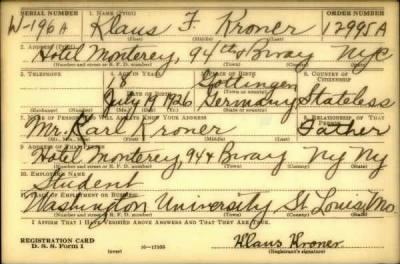 SERIAL NUMBER 1. NAME (Print) ORDER NUMBER
W-196A Klaus F. Kroner 12995A
(First) (Middle) (Last)
2. ADDRESS (Print)
Hotel Monterey, 94th & Bway NYC
(Number and street or R. F. D. number) (Town) (County) (State)
3. TELEPHONE 4. AGE IN YEARS 5. PLACE OF BIRTH 6. COUNTRY OF CITIZENSHIP
18 Gottingen
July 19 1926 Germany Stateless
7. NAME OF PERSON WHO WILL ALWAYS KNOW YOUR ADDRESS 8. RELATIONSHIP OF THAT PERSON
Mr. Karl Kroner Father
9. ADDRESS OF THAT PERSON
Hotel Monterey, 94 & Bway Ny Ny
(Number and street or R. F. D. number) (Town) (County) (State)
10. EMPLOYER'S NAME
Student
11. PLACE OF EMPLOYMENT OR BUSINESS
Washington University St Louis, Mo.
(Number and street or R. F. D. number) (Town) (County) (State)
I AFFIRM THAT I HAVE VERIFIED ABOVE ANSWERS AND THAT THEY ARE TRUE.
REGISTRATION CARD
D. S. S. Form 1 (over) Klaus Kroner
(Registrant's signature)